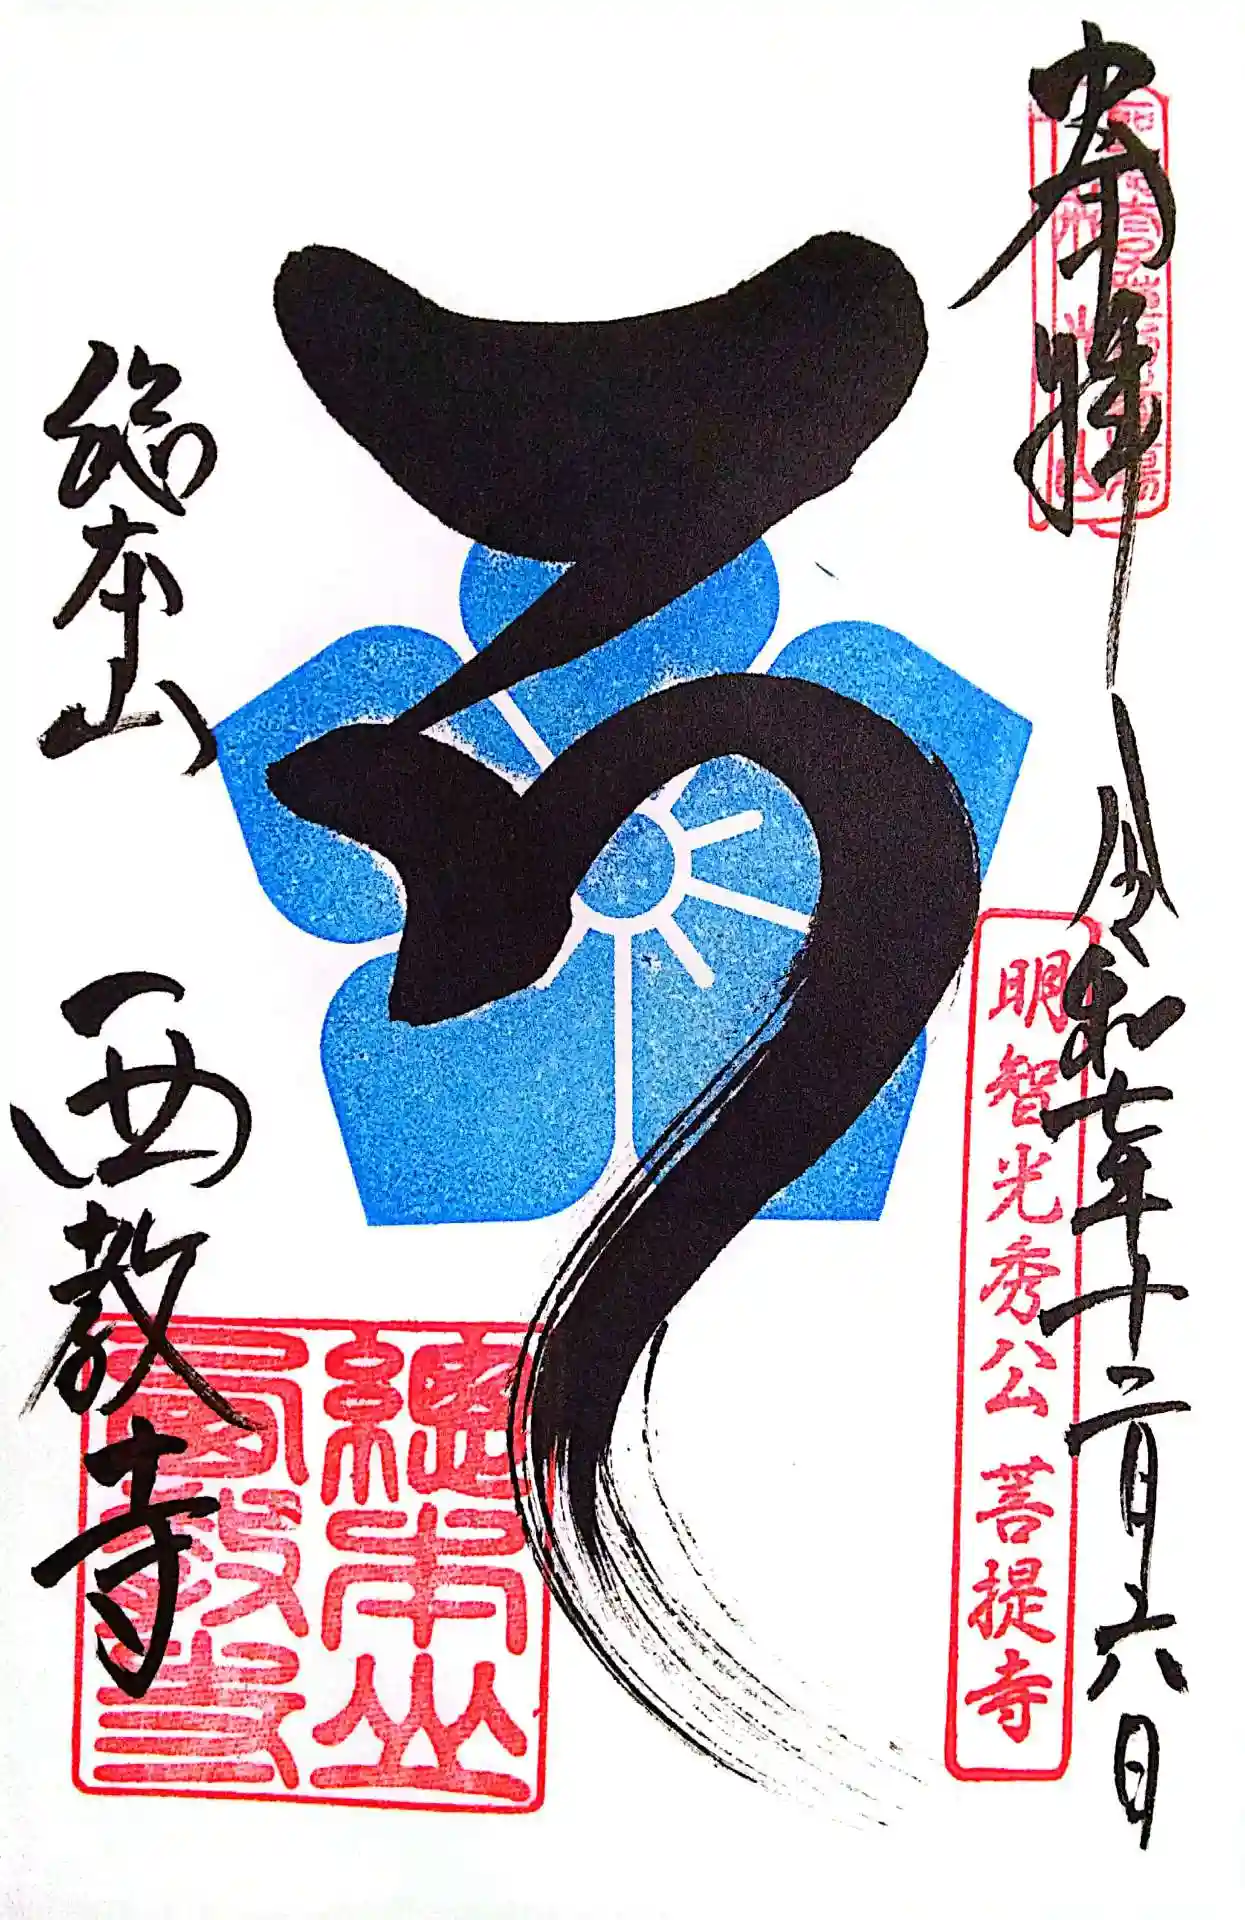 奉拝
月参り
令和七年十二月六日
明智光秀公菩提寺
總本山
西教寺
總本山
西教寺